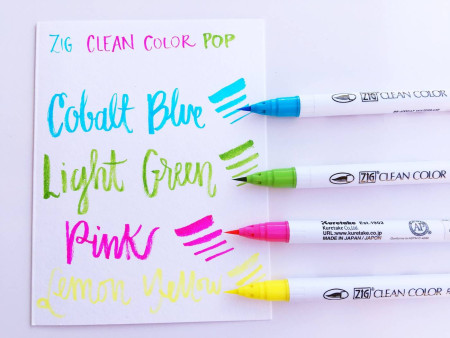 ZIG CLEAN COLOR POP
Cobalt Blue
ZIG CLEAN COLOR
Light Green
ZIG CLEAN COLOR
Pink
Kuretake Est. 1902
Kuretake Co.,Ltd.
URL:www.kuretake.co.jp
MADE IN JAPAN / JAPON
AP
Lemon Yellow
ZIG CLEAN COLOR